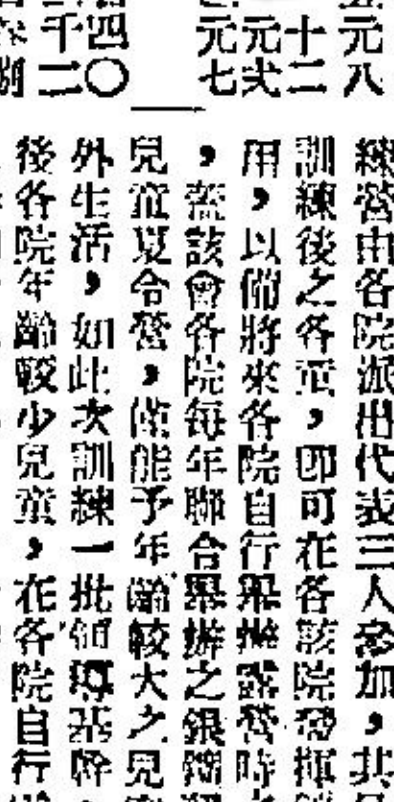 元八
十二
元弍
元七
四〇
千二
練營由各院派出代表三人參加，其
訓練後之各童，即可在各該院發揮
用，以備將來各院自行舉辦露營時
，蓋該會各院每年聯合舉辦之銀
兒童夏令營，僅能予年齡較大之兒
外生活，如此次訓練一批領導基幹
後各院年齡較少兒童，在各院自行